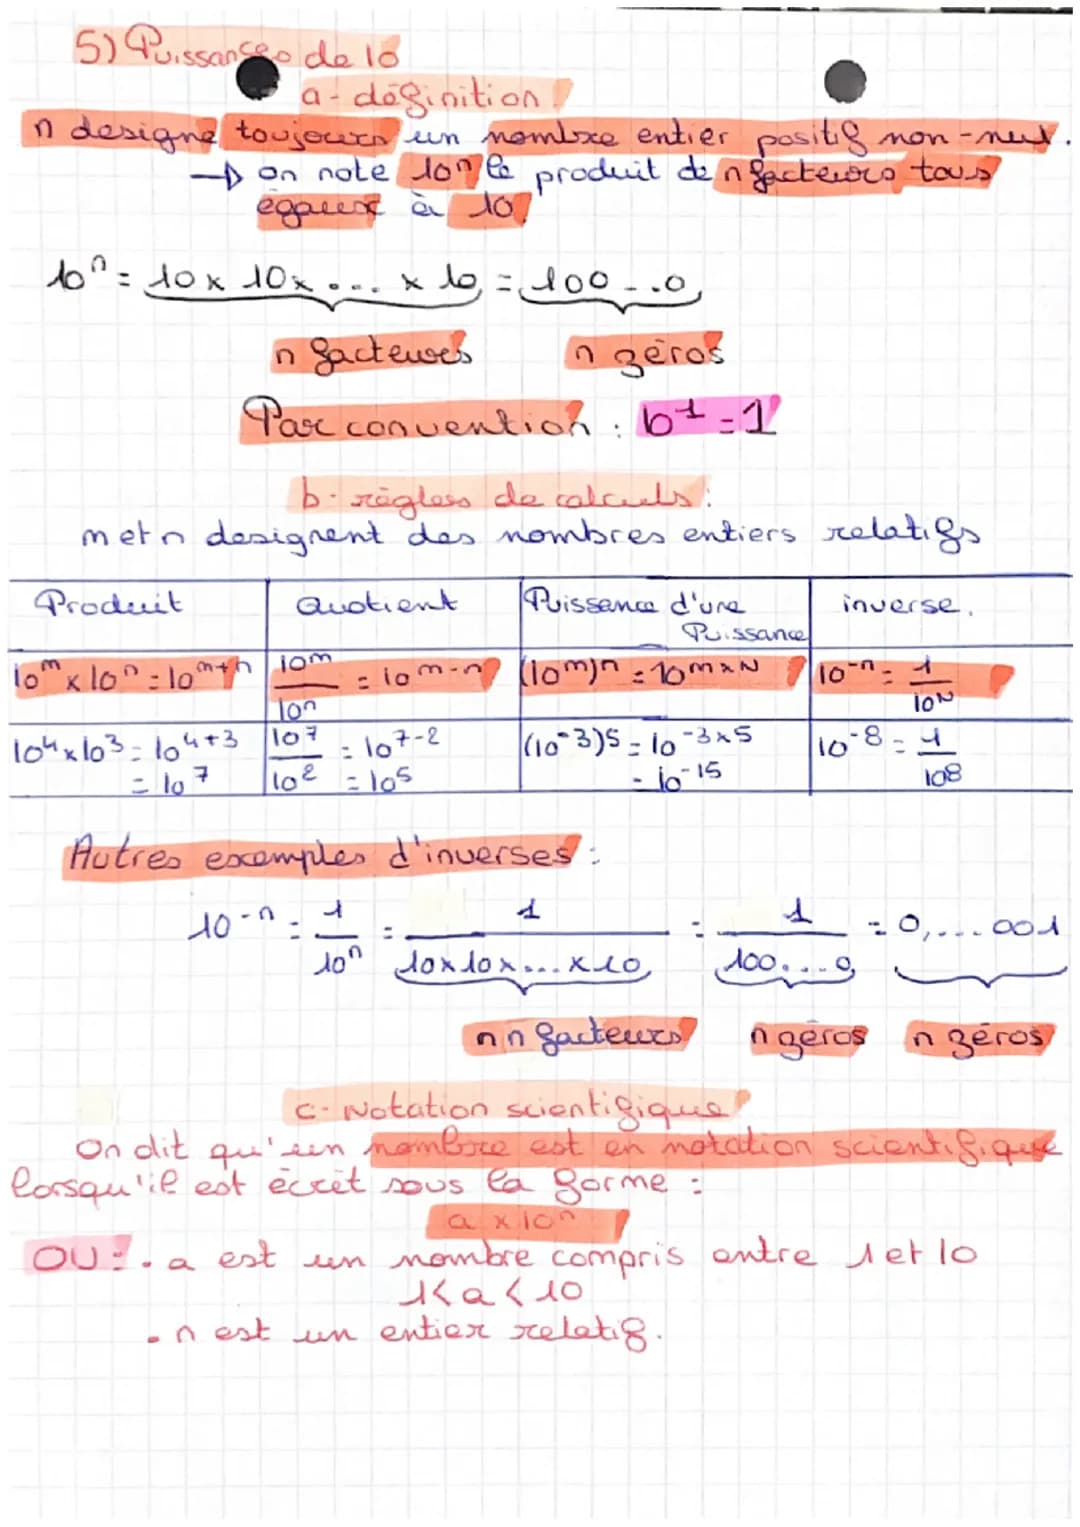 5) Puissances de 10
a - définition
n designe toujours un nombre entier positif non-nul.
→ on note 10ⁿ le produit de n facteurs tous
égaux à 10
10ⁿ = 10 x 10 x ... x 10 = 100...0
n facteurs n zéros
Par convention : 10¹ = 1
b - règles de calculs :
m et n designent des nombres entiers relatifs
Produit Quotient Puissance d'une Puissance inverse.
10ᵐ x 10ⁿ = 10ᵐ⁺ⁿ 10ᵐ/10ⁿ = 10ᵐ⁻ⁿ (10ᵐ)ⁿ = 10ᵐˣᴺ 10⁻ⁿ = 1/10ᴺ
10⁴ x 10³ = 10⁴⁺³ = 10⁷ 10⁷/10² = 10⁷⁻² = 10⁵ (10⁻³)5 = 10⁻³ˣ⁵ = 10⁻¹⁵ 10⁻⁸ = 1/10⁸
Autres exemples d'inverses :
10⁻ⁿ = 1/10ⁿ = 1/10x10x...x10 = 1/100...0 = 0,...001
n n facteurs n zéros n zéros
c - Notation scientifique
On dit qu'un nombre est en notation scientifique
lorsqu'il est écrit sous la forme :
a x 10ⁿ
OU : . a est un nombre compris entre 1 et 10
1 < a < 10
. n est un entier relatif.